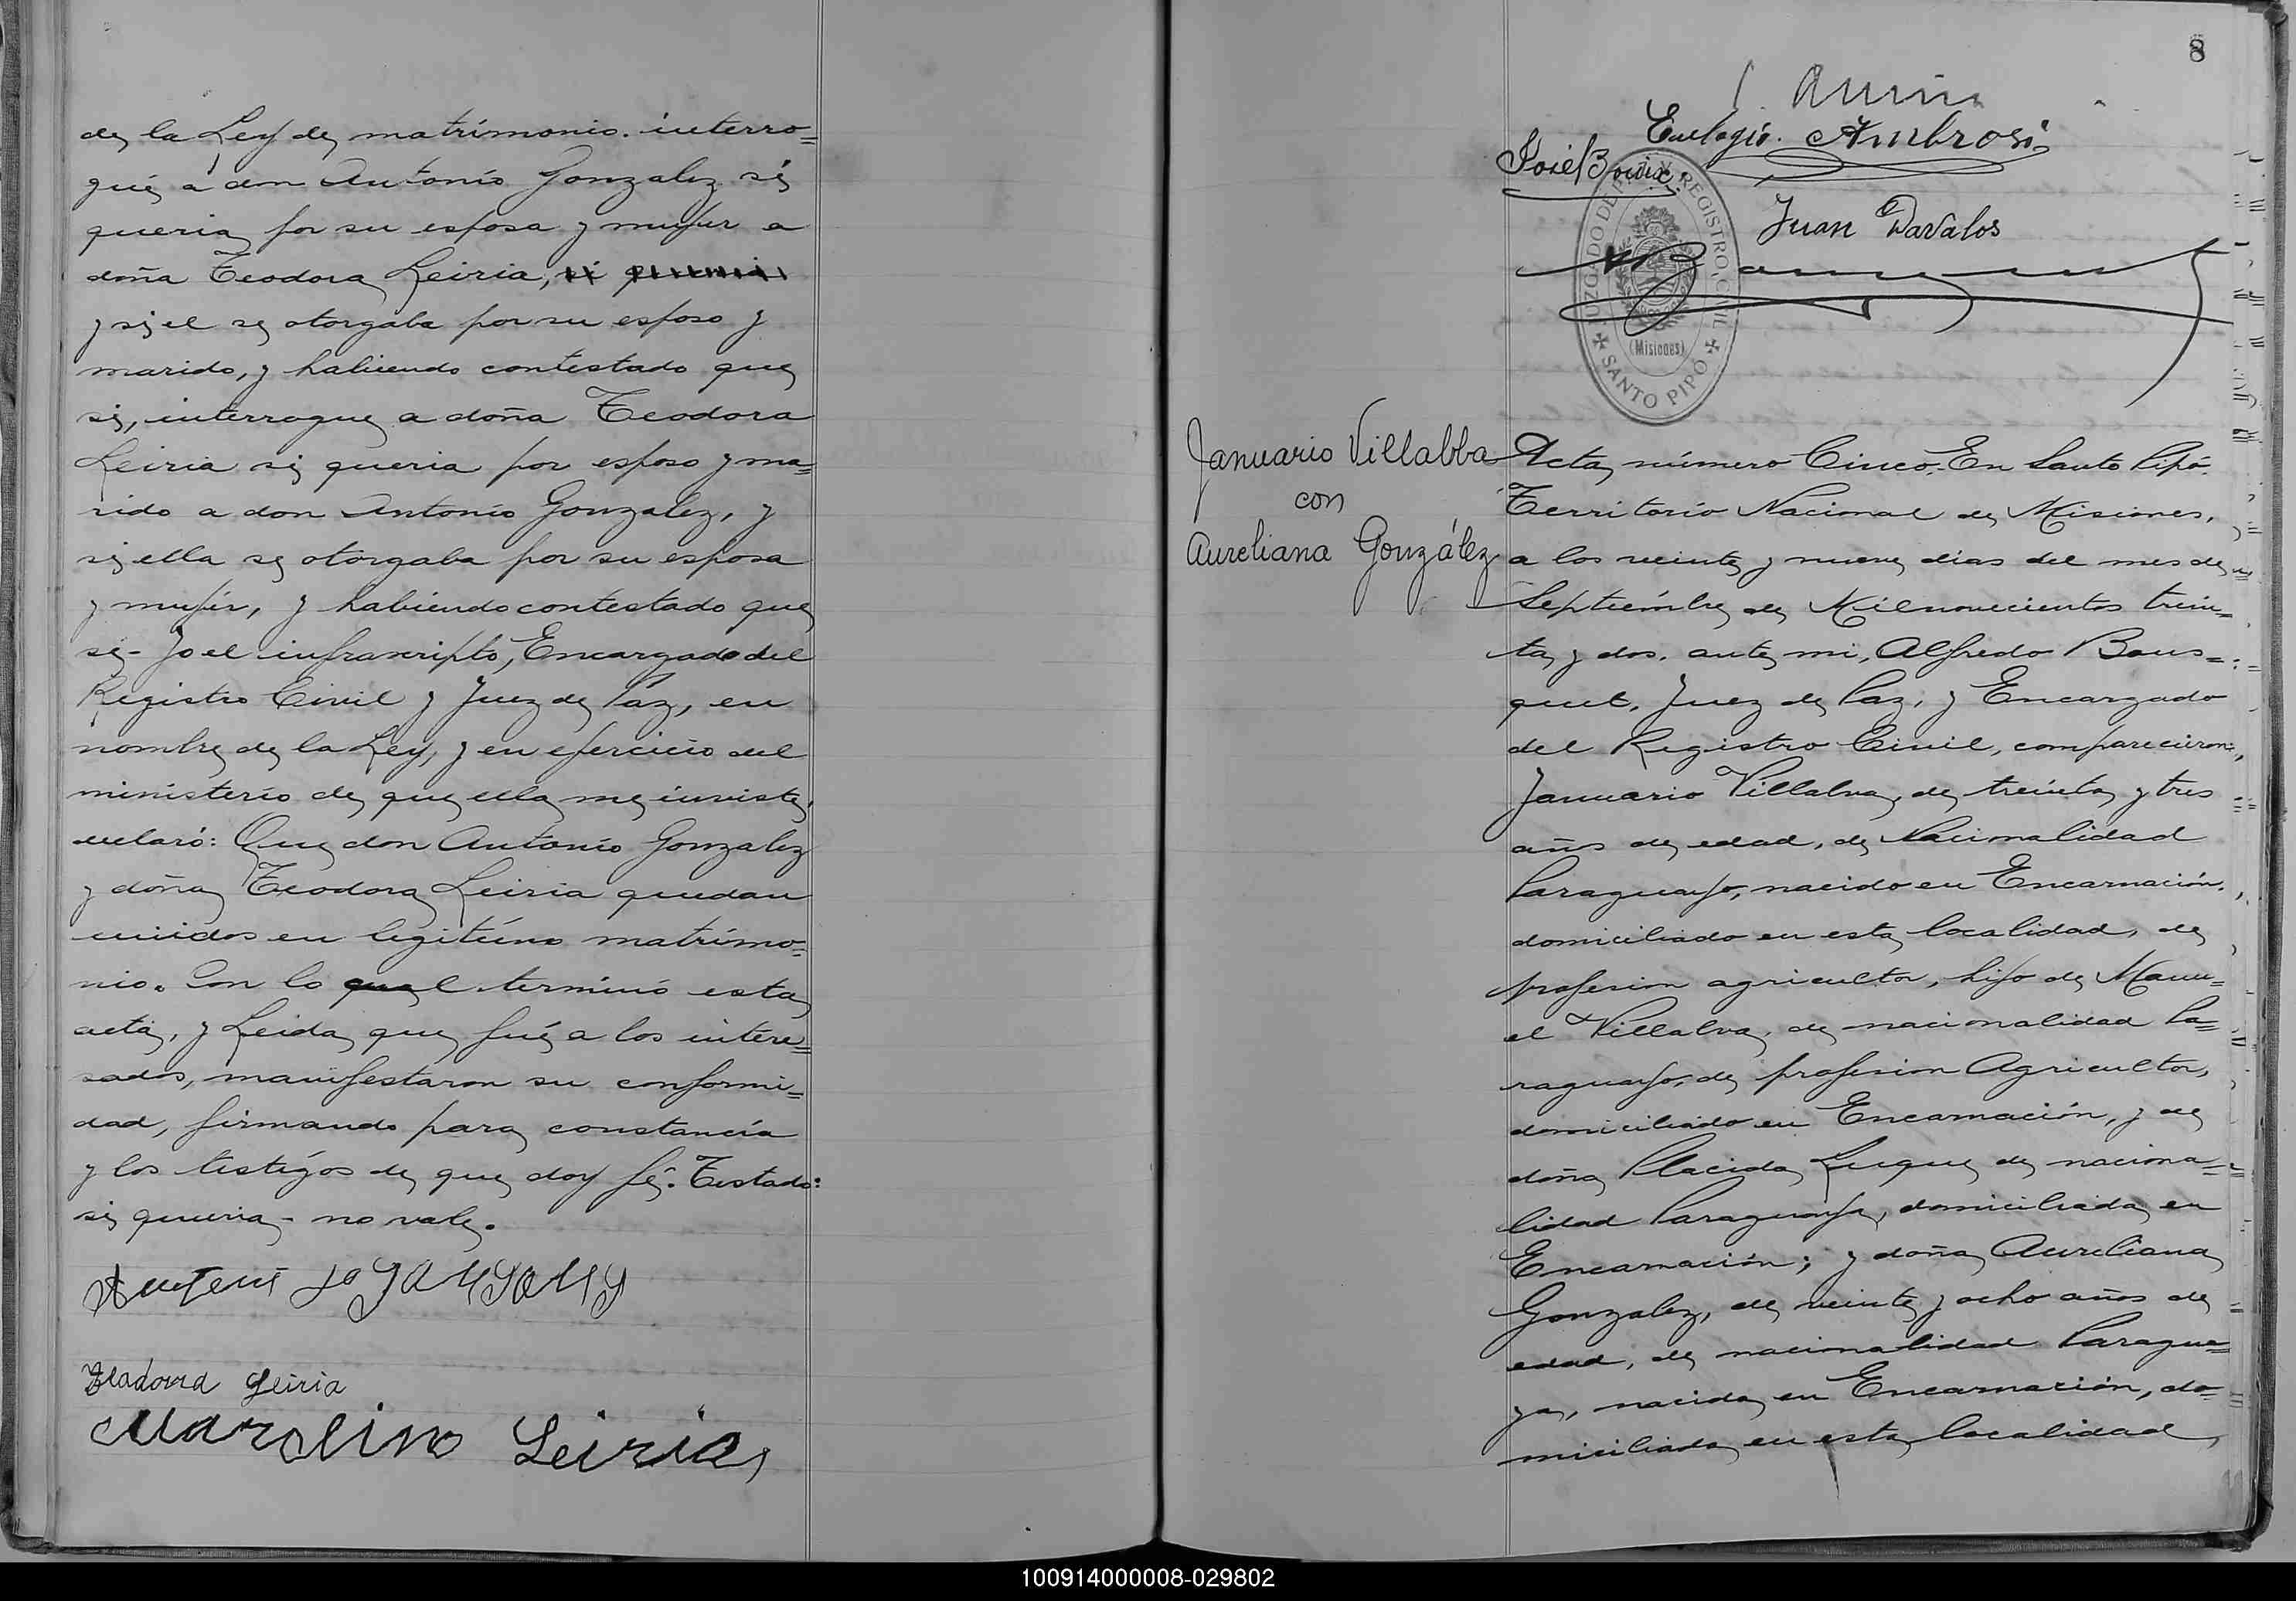 de la Ley de matrimonio. interro=
gué a don Antonio Gonzalez si
queria por su esposa y mujer a
doña Teodora Leiria, si queria
y si el se otorgaba por su esposo y
marido, y habiendo contestado que
si, interrogue a doña Teodora
Leiria si queria por esposo y ma=
rido a don Antonio Gonzalez, y
si ella se otorgaba por su esposa
y mujer, y habiendo contestado que
si- yo el infrascripto, Encargado del
Registro Civil y Juez de Paz, en
nombre de la Ley, y en ejercicio del
ministerio de que ella me inviste,
declaró: Que don Antonio Gonzalez
y doña Teodora Leiria quedan
unidos en legitimo matrimo=
nio. Con lo qual terminó esta
acta, y Leida que fué a los intere=
sados, manifestaron su conformi=
dad, firmando para constancia
y los testigos de que doy fé. Testado:
si queria - no vale.
Leiria
Marolino Leiria
8
Eulogio Ambrosi
José
Juan Davalos
JUZGADO DE PAZ Y REGISTRO CIVIL
(Misiones)
SANTO PIPÓ
Januario Villalba
con
Aureliana González
Acta número Cinco. En Santo Pipó.
Territorio Nacional de Misiones,
a los veinte y nueve dias del mes de
Septiembre de Milnovecientos trein=
ta y dos. ante mi, Alfredo Bous=
quet, Juez de Paz, y Encargado
del Registro Civil, comparecieron,
Januario Villalva, de treinta y tres
años de edad, de Nacionalidad
Paraguayo, nacido en Encarnación.
domiciliado en esta localidad, de
profesion agricultor, hijo de Manu=
el Villalva, de nacionalidad Pa=
raguayo, de profesion Agricultor,
domiciliado en Encarnación, y de
doña Placida Luque de naciona=
lidad Paraguaya, domiciliada en
Encarnación; y doña Aureliana
Gonzalez, de veinte y ocho años de
edad, de nacionalidad Paragua=
ya, nacida en Encarnación, do=
miciliada en esta localidad,
100914000008-029802